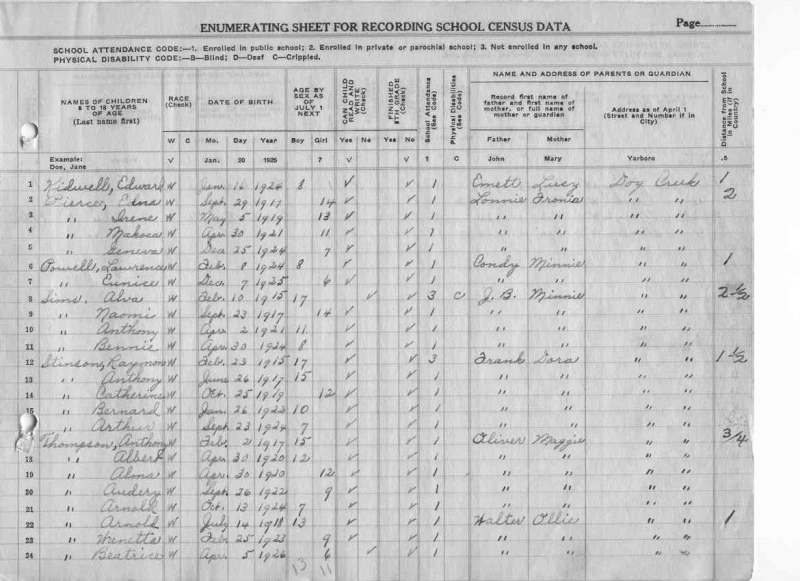 ENUMERATING SHEET FOR RECORDING SCHOOL CENSUS DATA Page
SCHOOL ATTENDANCE CODE:—1. Enrolled in public school; 2. Enrolled in private or parochial school; 3. Not enrolled in any school.
PHYSICAL DISABILITY CODE:—B—Blind; D—Deaf C—Crippled.
NAMES OF CHILDREN 6 TO 18 YEARS OF AGE (Last name first)
RACE (Check)
DATE OF BIRTH
AGE BY SEX AS OF JULY 1 NEXT
CAN CHILD READ AND WRITE (Check)
FINISHED 8TH GRADE (Check)
School Attendance (See Code)
Physical Disabilities (See Code)
NAME AND ADDRESS OF PARENTS OR GUARDIAN
Record first name of father and first name of mother, or full name of mother or guardian
Address as of April 1 (Street and Number if in City)
Distance from School in Miles (If in Country)
W C Mo. Day Year Boy Girl Yes No Yes No Father Mother
Example: Doe, Jane V Jan. 20 1925 7 V V 1 C John Mary Yarboro .5
1 Kidwell, Edward W Jan. 16 1924 8 ✓ ✓ 1 Emett Lucy Dog Creek 1
2 Pierce, Edna W Sept. 29 1917 14 ✓ ✓ 1 Lonnie Fronia " " 2
3 " Irene W May 5 1919 13 ✓ ✓ 1 " " " "
4 " Makoca W Apr. 30 1921 11 ✓ ✓ 1 " " " "
5 " Geneva W Dec. 25 1924 7 ✓ ✓ 1 " " " "
6 Powell, Lawrence W Feb. 8 1924 8 ✓ ✓ 1 Condy Minnie " " 1
7 " Eunice W Dec. 7 1925 6 ✓ ✓ 1 " " " "
8 Sims. Alva W Feb. 10 1915 17 ✓ ✓ 3 C J. B. Minnie " " 2 1/2
9 " Naomi W Sept. 23 1917 14 ✓ ✓ 1 " " " "
10 " Anthony W Apr. 2 1921 11 ✓ ✓ 1 " " " "
11 " Bennie W Apr. 30 1924 8 ✓ ✓ 1 " " " "
12 Stinson, Raymon W Feb. 23 1915 17 ✓ ✓ 3 Frank Dora " " 1 1/2
13 " Anthony W June 26 1917 15 ✓ ✓ 1 " " " "
14 " Catherine W Oct. 25 1919 12 ✓ ✓ 1 " " " "
15 " Bernard W Jan. 26 1922 10 ✓ ✓ 1 " " " "
" Arthur W Sept. 23 1924 7 ✓ ✓ 1 " " " "
Thompson, Anthony W Feb. 2 1917 15 ✓ ✓ 1 Oliver Maggie " " 3/4
18 " Albert W Apr. 30 1920 12 ✓ ✓ 1 " " " "
19 " Alma W Apr. 30 1920 12 ✓ ✓ 1 " " " "
20 " Audery W Sept. 26 1922 9 ✓ ✓ 1 " " " "
21 " Arnold W Oct. 13 1924 7 ✓ ✓ 1 " " " "
22 " Arnold W July 14 1918 13 ✓ ✓ 1 Walter Ollie " " 1
23 " Wenetta W Feb. 25 1923 9 ✓ ✓ 1 " " " "
24 " Beatrice W Apr. 5 1926 6 ✓ ✓ 1 " " " "
13 11